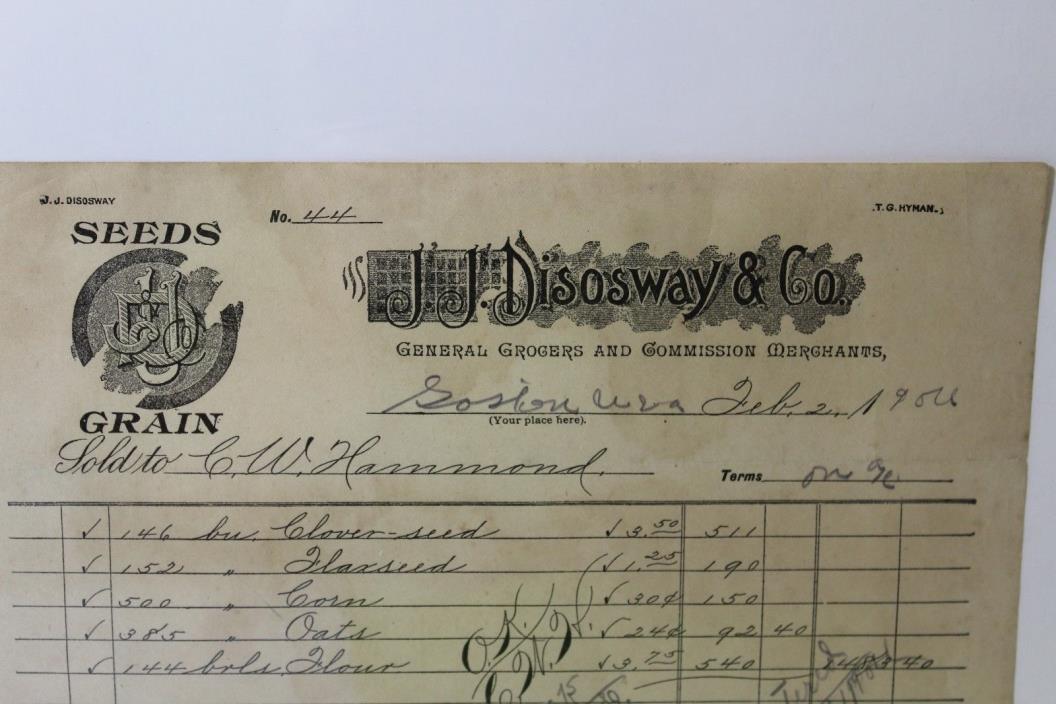 J. J. DISOSWAY
T. G. HYMAN.
No. 44
SEEDS
GRAIN
J. J. Disosway & Co.
GENERAL GROCERS AND COMMISSION MERCHANTS,
Feb. 2, 1904
(Your place here).
Sold to C. W. Hammond.
Terms on %
✓ 146 bu. Clover-seed ✓ 3.50 511
✓ 152 " Flaxseed ✓ 1.25 190
✓ 500 " Corn ✓ 30¢ 150
✓ 385 " Oats ✓ 24¢ 92 40
✓ 144 brls. Flour ✓ 3.75 540 1483 40
O.K.